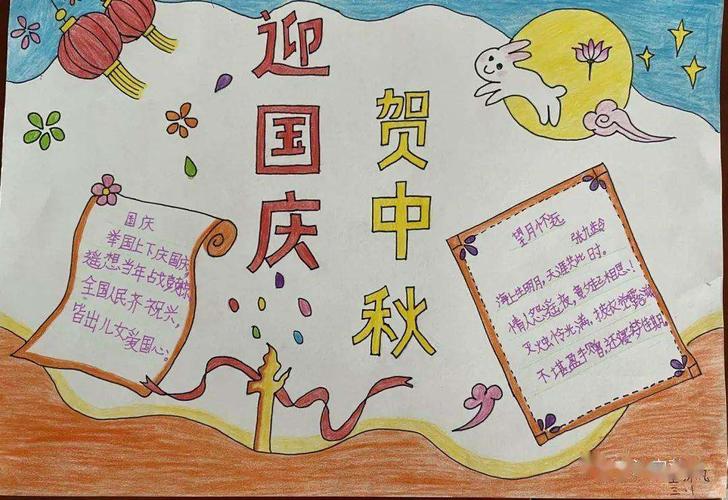 迎国庆
贺中秋
国庆
举国上下庆国庆
遥想当年战
全国人民齐祝兴，
皆出儿女爱国心。
望月怀远
张九龄
海上生明月，天涯共此时。
情人怨遥夜，竟夕起相思！
灭烛怜光满，披衣觉露滋。
不堪盈手赠，还寝梦佳期。